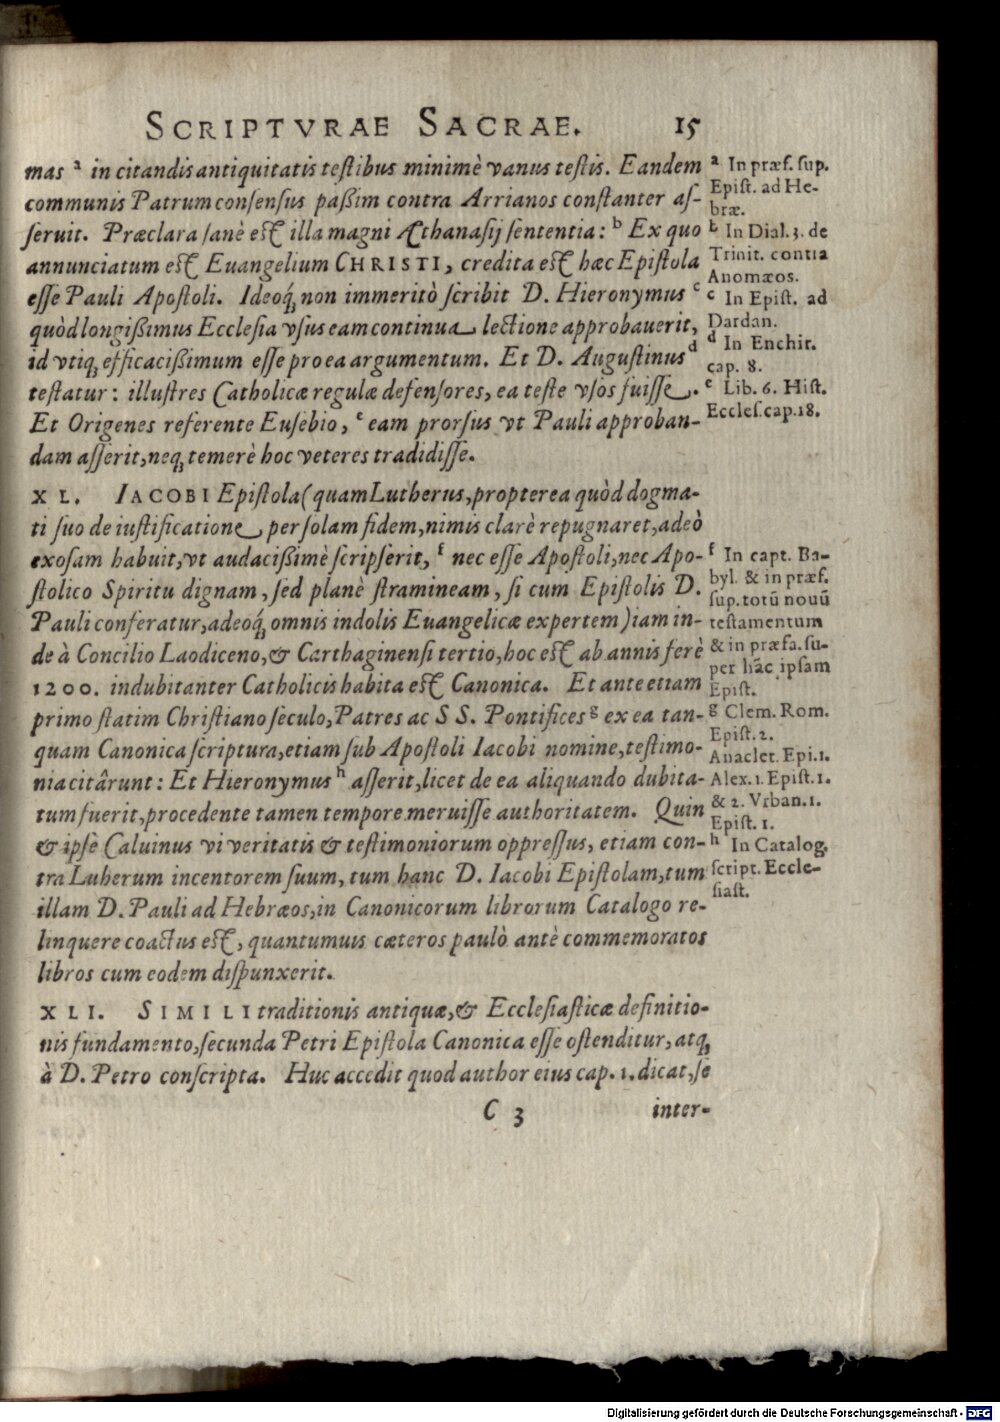 SCRIPTVRAE SACRAE. 15
mas ᵃ in citandis antiquitatis testibus minimè vanus testis. Eandem
communis Patrum consensus paßim contra Arrianos constanter as-
seruit. Præclara sanè est illa magni Athanasij sententia: ᵇ Ex quo
annunciatum est Euangelium CHRISTI, credita est hæc Epistola
esse Pauli Apostoli. Ideoq́; non immeritò scribit D. Hieronymus ᶜ
quòd longißimus Ecclesia vsus eam continua lectione approbauerit,
id vtiq; efficacißimum esse pro ea argumentum. Et D. Augustinus ᵈ
testatur: illustres Catholicæ regulæ defensores, ea teste vsos fuisse.
Et Origenes referente Eusebio, ᵉ eam prorsus vt Pauli approban-
dam asserit, neq; temerè hoc veteres tradidisse.
XL. IACOBI Epistola (quam Lutherus, propterea quòd dogma-
ti suo de iustificatione per solam fidem, nimis clarè repugnaret, adeò
exosam habuit, vt audacißimè scripserit, ᶠ nec esse Apostoli, nec Apo-
stolico Spiritu dignam, sed planè stramineam, si cum Epistolis D.
Pauli conferatur, adeoq́; omnis indolis Euangelicæ expertem) iam in-
de à Concilio Laodiceno, & Carthaginensi tertio, hoc est ab annis ferè
1200. indubitanter Catholicis habita est Canonica. Et ante etiam
primo statim Christiano seculo, Patres ac SS. Pontifices ᵍ ex ea tan-
quam Canonica scriptura, etiam sub Apostoli Iacobi nomine, testimo-
nia citârunt: Et Hieronymus ʰ asserit, licet de ea aliquando dubita-
tum fuerit, procedente tamen tempore meruisse authoritatem. Quin
& ipse Caluinus vi veritatis & testimoniorum oppressus, etiam con-
tra Luherum incentorem suum, tum hanc D. Iacobi Epistolam, tum
illam D. Pauli ad Hebræos, in Canonicorum librorum Catalogo re-
linquere coactus est, quantumuis cæteros paulò antè commemoratos
libros cum eodem dispunxerit.
XLI. SIMILI traditionis antiquæ, & Ecclesiasticæ definitio-
nis fundamento, secunda Petri Epistola Canonica esse ostenditur, atq;
à D. Petro conscripta. Huc accedit quod author eius cap. 1. dicat, se
C 3 inter-
ᵃ In præf. sup.
Epist. ad He-
bræ.
ᵇ In Dial. 3. de
Trinit. contra
Anomæos.
ᶜ In Epist. ad
Dardan.
ᵈ In Enchir.
cap. 8.
ᵉ Lib. 6. Hist.
Eccles. cap. 18.
ᶠ In capt. Ba-
byl. & in præf.
sup. totũ nouũ
testamentum
& in præfa. su-
per hãc ipsam
Epist.
ᵍ Clem. Rom.
Epist. 2.
Anaclet. Epi. 1.
Alex. 1. Epist. 1.
& 2. Vrban. 1.
Epist. 1.
ʰ In Catalog.
script. Eccle-
siast.
Digitalisierung gefördert durch die Deutsche Forschungsgemeinschaft - DFG